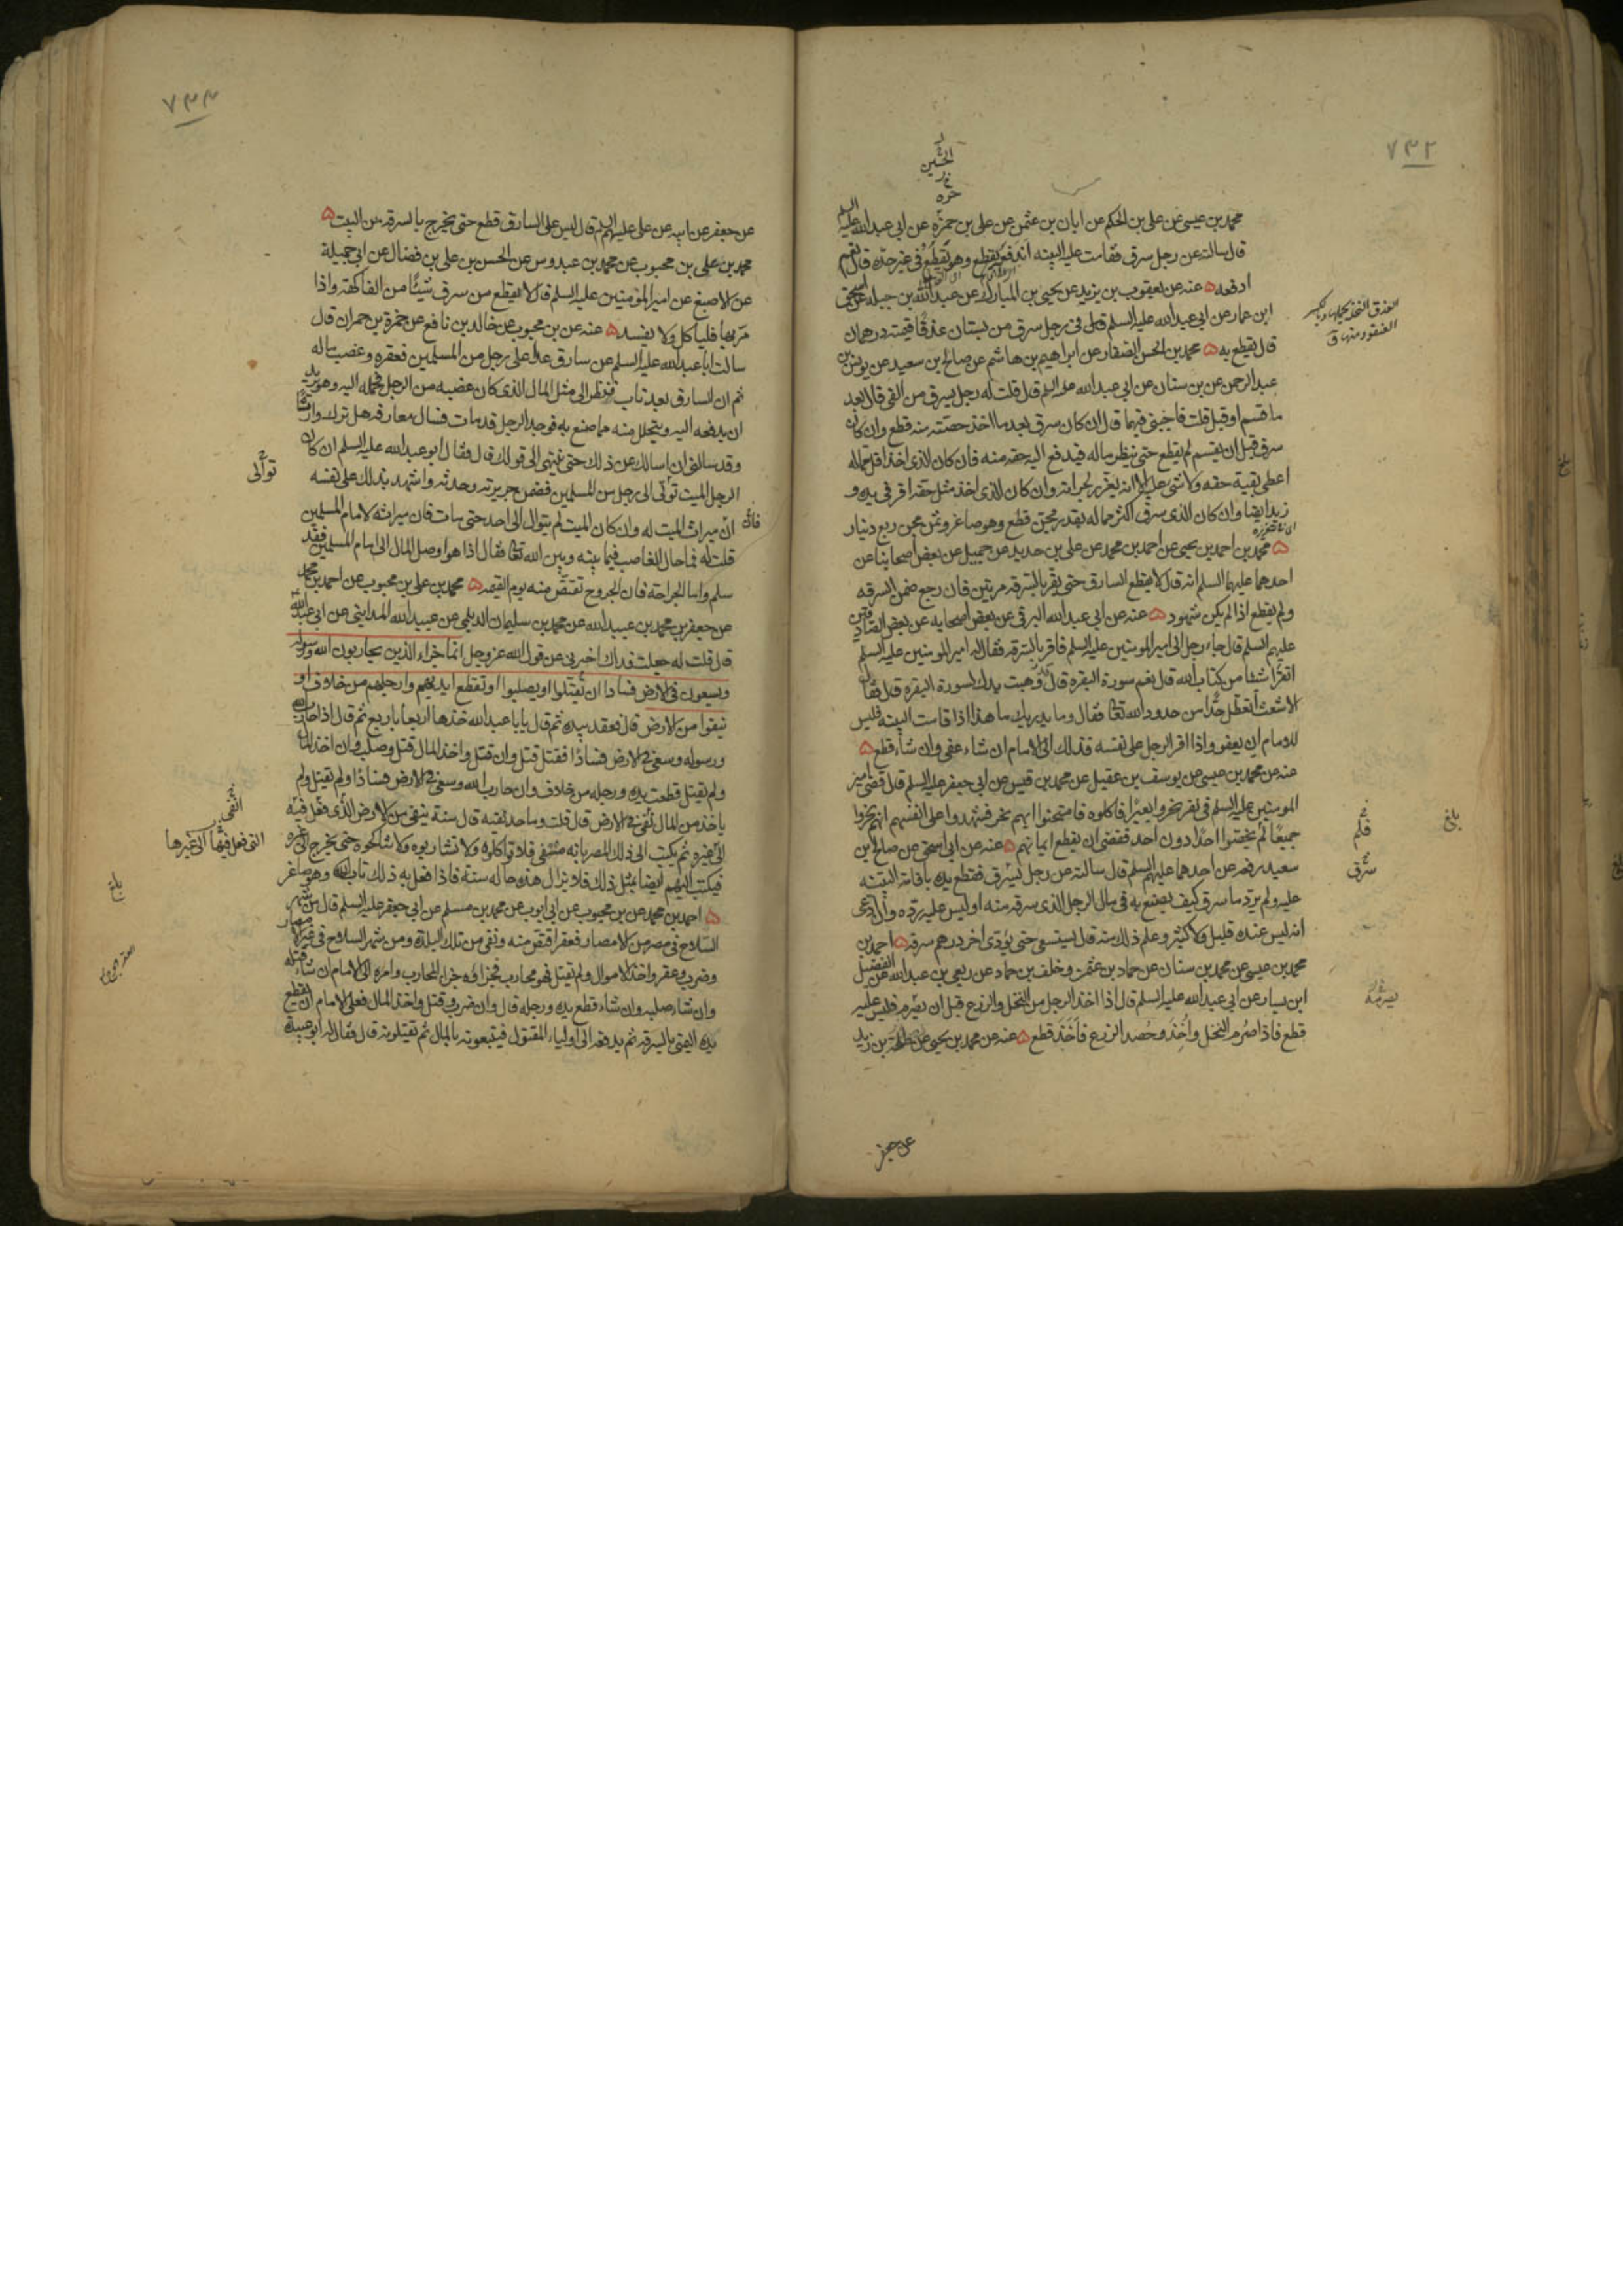 ٧٣٢
الحسين
خ ر
حره
محمد بن عيسى عن على بن الحكم عن ابان بن عثمن عن على بن حمزه عن ابى عبد الله عليه السلم
قال سالته عن رجل سرق فقامت عليه البينه اندفعه يقطع وهو يقطع فى غير حده قال نعم
ادفعه ۵ عنه عن يعقوب بن يزيد عن يحيى بن المبارك عن عبد الله بن جبله عن اسحق
ابن عمار عن ابى عبد الله عليه السلم قال فى رجل سرق من بستان عذقا قيمته درهمان
قال يقطع به ۵ محمد بن الحسن الصفار عن ابراهيم بن هاشم عن صالح بن سعيد عن يونس بن
عبد الرحمن عن بن سنان عن ابى عبد الله عليه السلم قال قلت له رجل يسرق من الفى قال بعد
ما قسم او قبل قلت فاجبنى فيهما قال ان كان سرق بعد ما اخذ حصته منه قطع وان كان
سرق قبل ان يقسم لم يقطع حتى ينظر ماله فيدفع اليه حقه منه فان كان الذى اخذ اقل مماله
اعطى بقية حقه ولا شى عليه الا انه يعزر لجراته وان كان الذى اخذ مثل حقه اقر فى يده و
زيد ايضا وان كان الذى سرق اكثر مماله بقدر مجن قطع وهو صاغر وثمن مجن ربع دينار
۵ محمد بن احمد بن يحيى عن احمد بن محمد عن على بن حديد عن جميل عن بعض اصحابنا عن
احدهما عليهما السلم انه قال لا يقطع السارق حتى يقر بالسرقه مرتين فان رجع ضمن السرقه
ولم يقطع اذا لم يكن شهود ۵ عنه عن ابى عبد الله البرقى عن بعض اصحابه عن بعض الصادقين
عليهم السلم قال جاء رجل الى امير المومنين عليه السلم فاقر بالسرقه فقال له امير المومنين عليه السلم
اتقرا شئا من كتاب الله قال نعم سورة البقره قال قد وهبت يدك لسورة البقره قال فقال
الاشعث أتعطل حدا من حدود الله تعالى فقال وما يدريك ما هذا اذا قامت البينه فليس
للامام ان يعفو واذا اقر الرجل على نفسه فذلك الى الامام ان شاء عفى وان شاء قطع ۵
عنه عن محمد بن عيسى عن يوسف بن عقيل عن محمد بن قيس عن ابى جعفر عليه السلم قال قضى امير
المومنين عليه السلم فى نفر نحروا بعيرا فاكلوه فامتحنوا ايهم نحر فشهدوا على انفسهم انهم نحروا
جميعا لم يخصوا احدا دون احد فقضى ان يقطع ايمانهم ۵ عنه عن ابى اسحق عن صالح بن
سعيد رفعه عن احدهما عليهم السلم قال سالته عن رجل يسرق فتقطع يده باقامة البينه
عليه ولم يرد ما سرق كيف يصنع به فى مال الرجل الذى سرقه منه اوليس عليه رده وان ادعى
انه ليس عنده قليل ولا كثير وعلم ذلك منه قال يستسعى حتى يؤدى اخر درهم سرقه ۵ احمد بن
محمد بن عيسى عن محمد بن سنان عن حماد بن عثمن وخلف بن حماد عن ربعى بن عبد الله عن الفضيل
ابن يسار عن ابى عبد الله عليه السلم قال اذا اخذ الرجل من النخل والزرع قبل ان يصرم فليس عليه
قطع فاذا صرم النخل وأخذ وحصد الزرع فأخذ قطع ۵ عنه عن محمد بن يحيى عن طلحة بن زيد
عن جعفر
بلغ
فلم
سرق
يصرمه
٧٣٣
عن جعفر عن ابيه عن على عليهم السلم قال ليس على السارق قطع حتى يخرج بالسرقه من البيت ۵
محمد بن على بن محبوب عن محمد بن عبدوس عن الحسن بن على بن فضال عن ابى جميلة
عن الاصبغ عن امير المومنين عليه السلم قال لا يقطع من سرق شيئا من الفاكهة واذا
مر بها فلياكل ولا يفسد ۵ عنه عن بن محبوب عن خالد بن نافع عن حمزة بن حمران قال
سالت ابا عبد الله عليه السلم عن سارق عدا على رجل من المسلمين فعقره وغصب ماله
ثم ان السارق بعد تاب فنظر الى مثل المال الذى كان غصبه من الرجل فحمله اليه وهو يريد
ان يدفعه اليه ويتحلل منه مما صنع به فوجد الرجل قد مات فسال معارفه هل ترك وارثا
وقد سالنى ان اسالك عن ذلك حتى ننتهى الى قولك قال فقال ابو عبد الله عليه السلم ان كان
الرجل الميت توالى الى رجل من المسلمين فضمن جريرته وحدثه واشهد بذلك على نفسه
فان ميراث الميت له وان كان الميت لم يتوال الى احد حتى مات فان ميراثه لامام المسلمين
قلت له فما حال الغاصب فيما بينه وبين الله تعالى فقال اذا هو اوصل المال الى امام المسلمين فقد
سلم واما الجراحة فان الجروح تقتص منه يوم القيمه ۵ محمد بن على بن محبوب عن احمد بن محمد
عن جعفر بن محمد بن عبيد الله عن محمد بن سليمان الديلمى عن عبيد الله المداينى عن ابى عبد الله
قال قلت له جعلت فداك اخبرنى عن قول الله عز وجل انما جزاء الذين يحاربون الله ورسوله
ويسعون فى الارض فسادا ان يقتلوا او يصلبوا او تقطع ايديهم وارجلهم من خلاف او
ينفوا من الارض قال فعقد بيده ثم قال يابا عبد الله خذها اربعا باربع ثم قال اذا حارب الله
ورسوله وسعى فى الارض فسادا فقتل قتل وان قتل واخذ المال قتل وصلب وان اخذ المال
ولم يقتل قطعت يده ورجله من خلاف وان حارب الله وسعى فى الارض فسادا ولم يقتل ولم
ياخذ من المال نفى فى الارض قال قلت وما حد نفيه قال سنة ينفى من الارض الذى فعل فيه
الى غيره ثم يكتب الى ذلك المصر بانه منفى فلا تواكلوه ولا تشاربوه ولا تناكحوه حتى يخرج الى غيره
فيكتب اليهم ايضا بمثل ذلك فلا يزال هذه حاله سنة فاذا فعل به ذلك تاب وهو صاغر
۵ احمد بن محمد عن بن محبوب عن ابى ايوب عن محمد بن مسلم عن ابى جعفر عليه السلم قال من شهر
السلاح فى مصر من الامصار فعقر اقتص منه ونفى من تلك البلدة ومن شهر السلاح فى غير الامصار
وضرب وعقر واخذ الاموال ولم يقتل فهو محارب فجزاؤه جزاء المحارب وامره الى الامام ان شاء قتله
وان شاء صلبه وان شاء قطع يده ورجله قال وان ضرب وقتل واخذ المال فعلى الامام ان يقطع
يده اليمنى بالسرقه ثم يدفعه الى اولياء المقتول فيتبعونه بالمال ثم يقتلونه قال فقال له ابو عبيدة
توالى
النفى
التى فعل فيها الى غيرها
بلغ